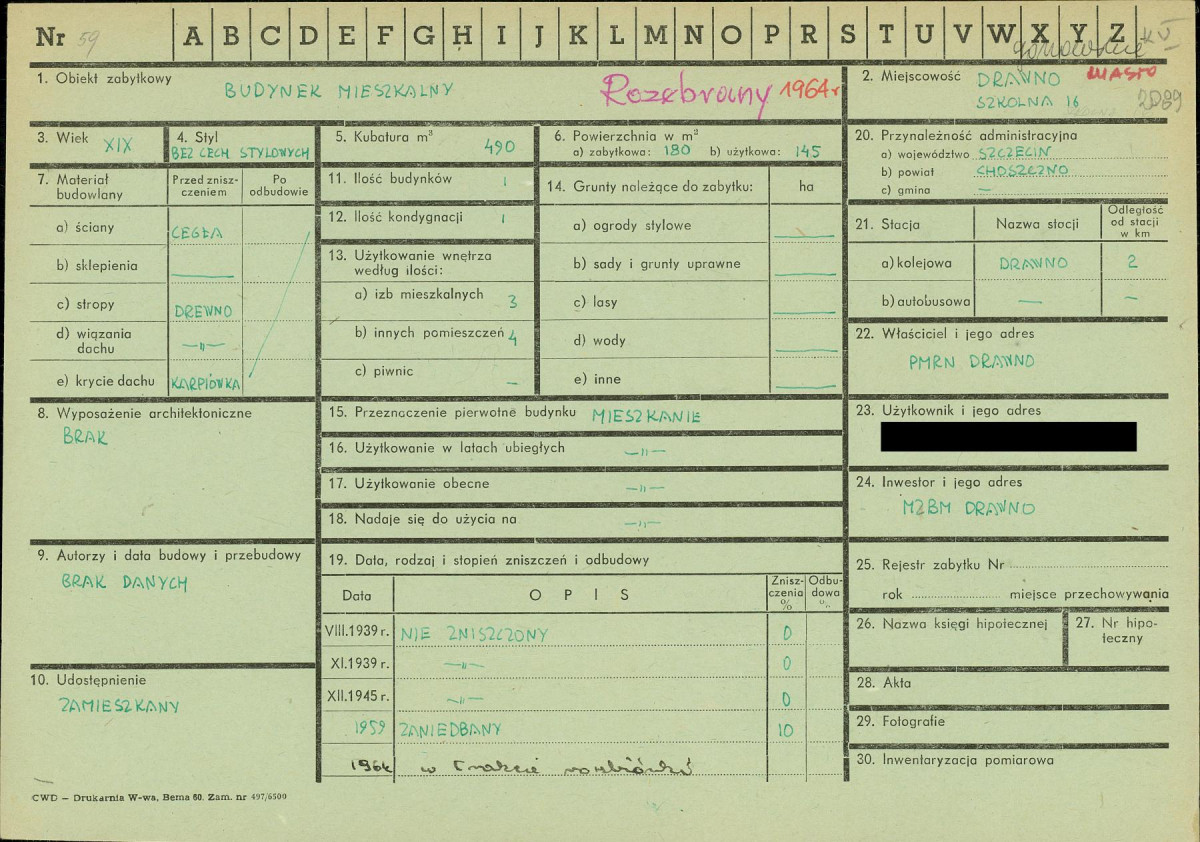 Nr 59 A B C D E F G H I J K L M N O P R S T U V W X Y Z
1. Obiekt zabytkowy BUDYNEK MIESZKALNY Rozebrany 1964 r
2. Miejscowość DRAWNO MIASTO
SZKOLNA 16 2089
3. Wiek XIX
4. Styl
BEZ CECH STYLOWYCH
5. Kubatura m³ 490
6. Powierzchnia w m²
a) zabytkowa: 180 b) użytkowa: 145
20. Przynależność administracyjna
a) województwo SZCZECIN
b) powiat CHOSZCZNO
c) gmina —
7. Materiał budowlany
Przed znisz-
czeniem
Po
odbudowie
a) ściany CEGŁA
b) sklepienia —
c) stropy DREWNO
d) wiązania
dachu —"—
e) krycie dachu KARPIÓWKA
11. Ilość budynków 1
12. Ilość kondygnacji 1
13. Użytkowanie wnętrza
według ilości:
a) izb mieszkalnych 3
b) innych pomieszczeń 4
c) piwnic —
14. Grunty należące do zabytku: ha
a) ogrody stylowe —
b) sady i grunty uprawne —
c) lasy —
d) wody —
e) inne —
21. Stacja Nazwa stacji
Odległość
od stacji
w km
a) kolejowa DRAWNO 2
b) autobusowa — —
22. Właściciel i jego adres
PMRN DRAWNO
8. Wyposażenie architektoniczne
BRAK
15. Przeznaczenie pierwotne budynku MIESZKANIE
16. Użytkowanie w latach ubiegłych —"—
17. Użytkowanie obecne —"—
18. Nadaje się do użycia na —"—
23. Użytkownik i jego adres
24. Inwestor i jego adres
MZBM DRAWNO
9. Autorzy i data budowy i przebudowy
BRAK DANYCH
19. Data, rodzaj i stopień zniszczeń i odbudowy
Data O P I S
Znisz-
czenia
%
Odbu-
dowa
%
VIII.1939 r. NIE ZNISZCZONY 0
XI.1939 r. —"— 0
XII.1945 r. —"— 0
1959 ZANIEDBANY 10
1964 w trakcie rozbiórki
25. Rejestr zabytku Nr
rok miejsce przechowywania
26. Nazwa księgi hipotecznej
27. Nr hipo-
teczny
10. Udostępnienie
ZAMIESZKANY
28. Akta
29. Fotografie
30. Inwentaryzacja pomiarowa
CWD — Drukarnia W-wa, Bema 60. Zam. nr 497/6500